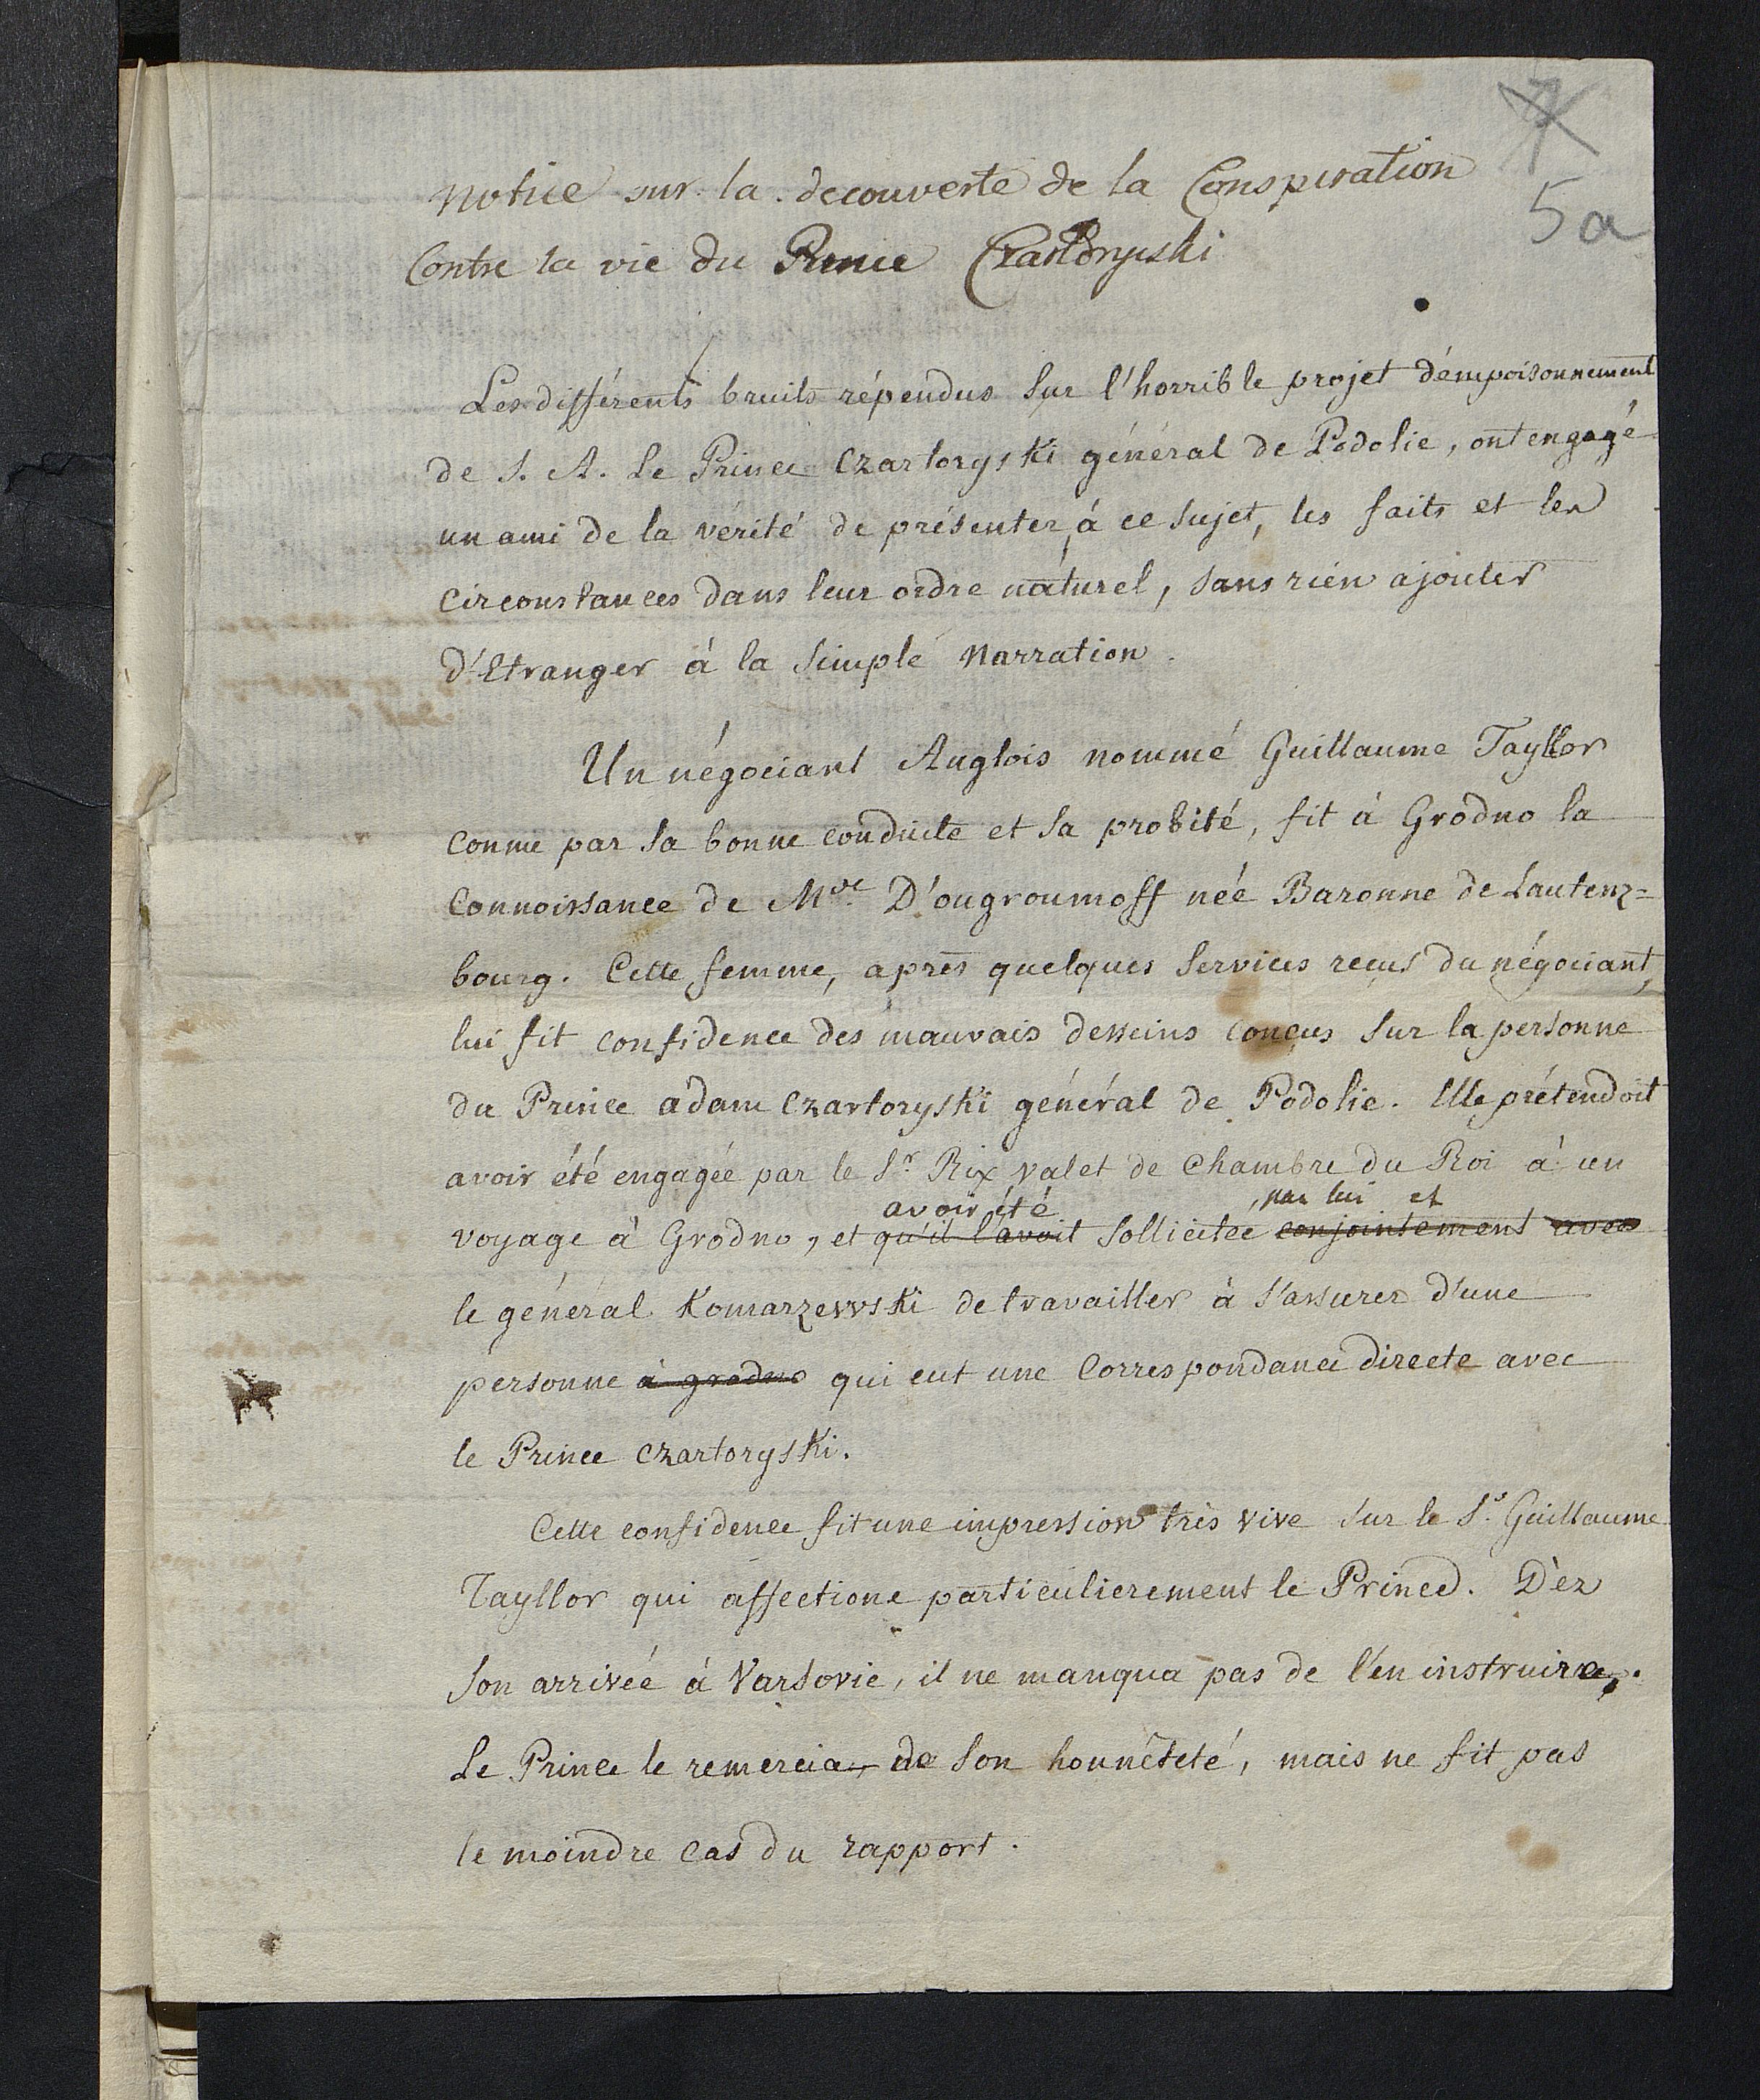 7
5a
Notice sur la decouverte de la Conspiration
Contre la vie du Prince Czartoryski
Les différents bruits répendus sur l'horrible projet d'émpoisonnement
de S. A. le Prince Czartoryski général de Podolie, ont engagé
un ami de la vérité de présenter, à ce sujet, les faits et les
circonstances dans leur ordre naturel, sans rien ajouter
d'Etranger à la simple Narration.
Un négociant Anglois nommé Guillaume Tayllor
connu par sa bonne conduite et sa probité, fit à Grodno la
connoissance de Mde. D'ougroumoff née Baronne de Lautenz=
bourg. Cette femme, après quelques services reçus du négociant,
lui fit confidence des mauvais desseins conçus sur la personne
du Prince adam Czartoryski général de Podolie. Elle prétendoit
avoir été engagée par le Sr. Rix valet de Chambre du Roi à un
avoir été , par lui et
voyage à Grodno, et qu'il l'avoit sollicitée conjointement avec
le général Komarzewski de travailler à s'assurer d'une
personne à grodno qui eut une Correspondance directe avec
le Prince Czartoryski.
Cette confidence fit une impression très vive sur le Sr. Guillaume
Tayllor qui affectione particulierement le Prince. Dèz
son arrivée à Varsovie, il ne manqua pas de l'en instruire.
Le Prince le remercia de son honnêteté, mais ne fit pas
le moindre cas du rapport.